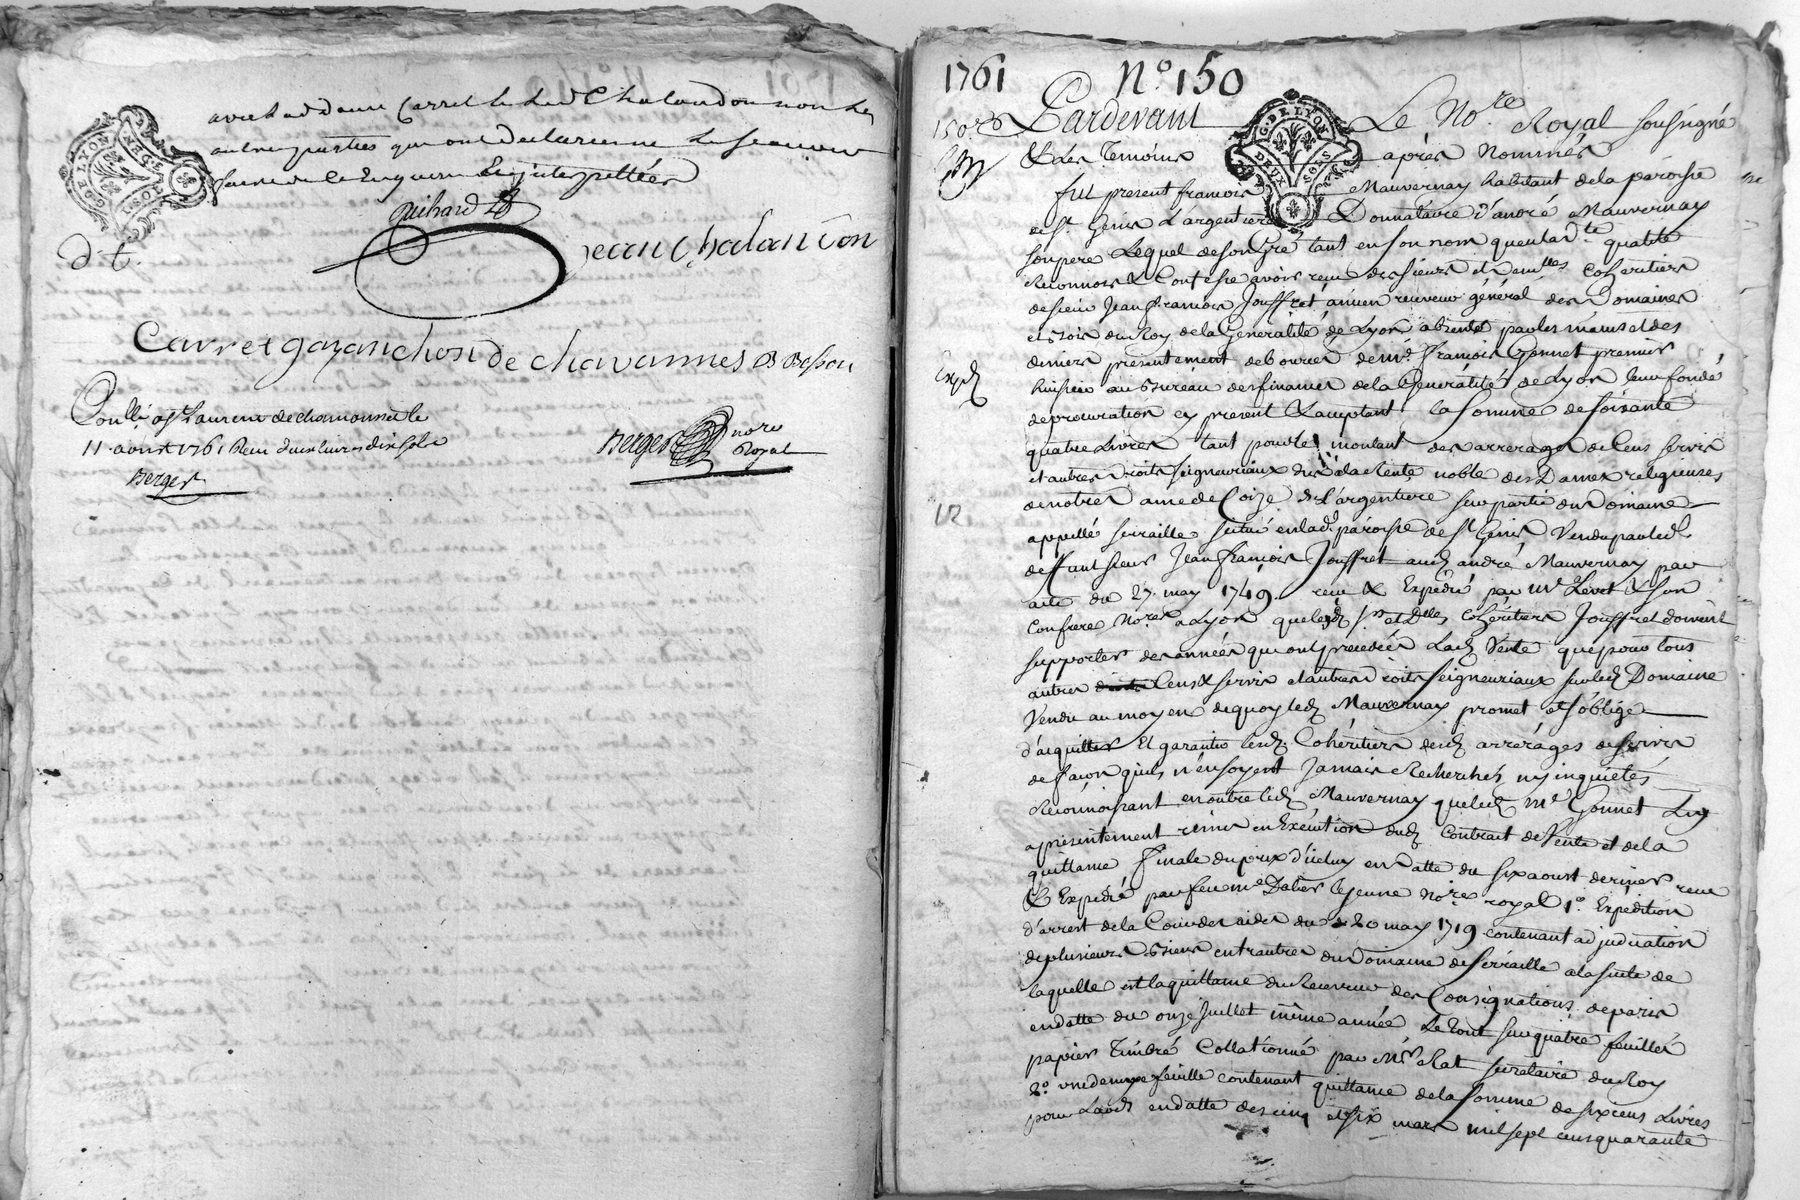 avec led. Carret le d. Chalandon non les
autres parties qui ont declaré ne le scavoir
faire de ce enquis et interpellées
Guihard
G. DE LYON
jean Chalancon
d. t.
Carret gayanchon de chavannes B Basson
Con.llé a St Laurent de chamousset le
11 aoust 1761 Reçu deux livres dix sols
Berger
Berger nore Royal
1761 No. 150
Pardevant Le No.re Royal soussigné
G. DE LYON
DEUX SOLS
& des Temoins après Nommés
fut present françois Mauvernay habitant de la paroisse
de St Genis L'argentiere Donnataire d'andré Mauvernay
son pere Lequel de son Gré tant en son nom qu'en lad.te qualité
Reconnois & Confesse avoir reçu des sieurs et Dem.lles Cohéritiers
de sieur Jean françois Jouffret ancien receveur général des Domaines
et Bois du Roy de la Generalité de Lyon absents par les mains et des
deniers présentement deboursés de Me. françois Gonnet premier
huissier au Bureau des finances de la Généralité de Lyon leur fondé
Exp.d
de procuration cy present & acceptant la somme de soixante
quatre Livres tant pour le montant des arrerages de Cens servis
et autres droits seigneuriaux dus à la Rente noble des Dames religieuses
de notre Dame de Coize de L'argentiere sur partie du Domaine
appellé serraille scitué en lad. paroisse de St Genis Vendu par led.
deffunt sieur Jean françois Jouffret aud. andré Mauvernay par
acte du 27. may 1749. reçu & Expedié par Me Levet & son
Confrere No.res a Lyon que lesd. srs et Dlles Cohéritiers Jouffret doivent
supporter des années qui ont precedées Lad. Vente que pour tous
autres Cens & servis et autres droits seigneuriaux sur led. Domaine
Vendu au moyen de quoy led. Mauvernay promet et s'oblige
d'acquitter Et garantir lesd. Cohéritiers desd. arrerages de servis
de façon qu'ils n'en soyent Jamais Recherchés ny inquietés
Reconnoissant en outre led. Mauvernay que led. Me Gonnet Luy
a presentement remis en Exécution dud. Contract de Vente et de la
quittance finale du prix d'icelui en datte du six aoust dernier reçue
& Expedié par feu Me Dalier le jeune No.re royal 1º. Expédition
d'arrest de la Cour des aides du 20 may 1719 contenant adjudication
de plusieurs Biens entrautres du Domaine de Serraille a la suite de
laquelle est la quittance du Receveur des Consignations de paris
en datte du onze Juillet même année Le tout sur quatre feuilles
papier Timbré Collationné par Mr Rat secretaire du Roy
2º. une demye feuille contenant quittance de la somme de six cens Livres
pour Lods en datte des cinq et six mars mil sept cens quarante